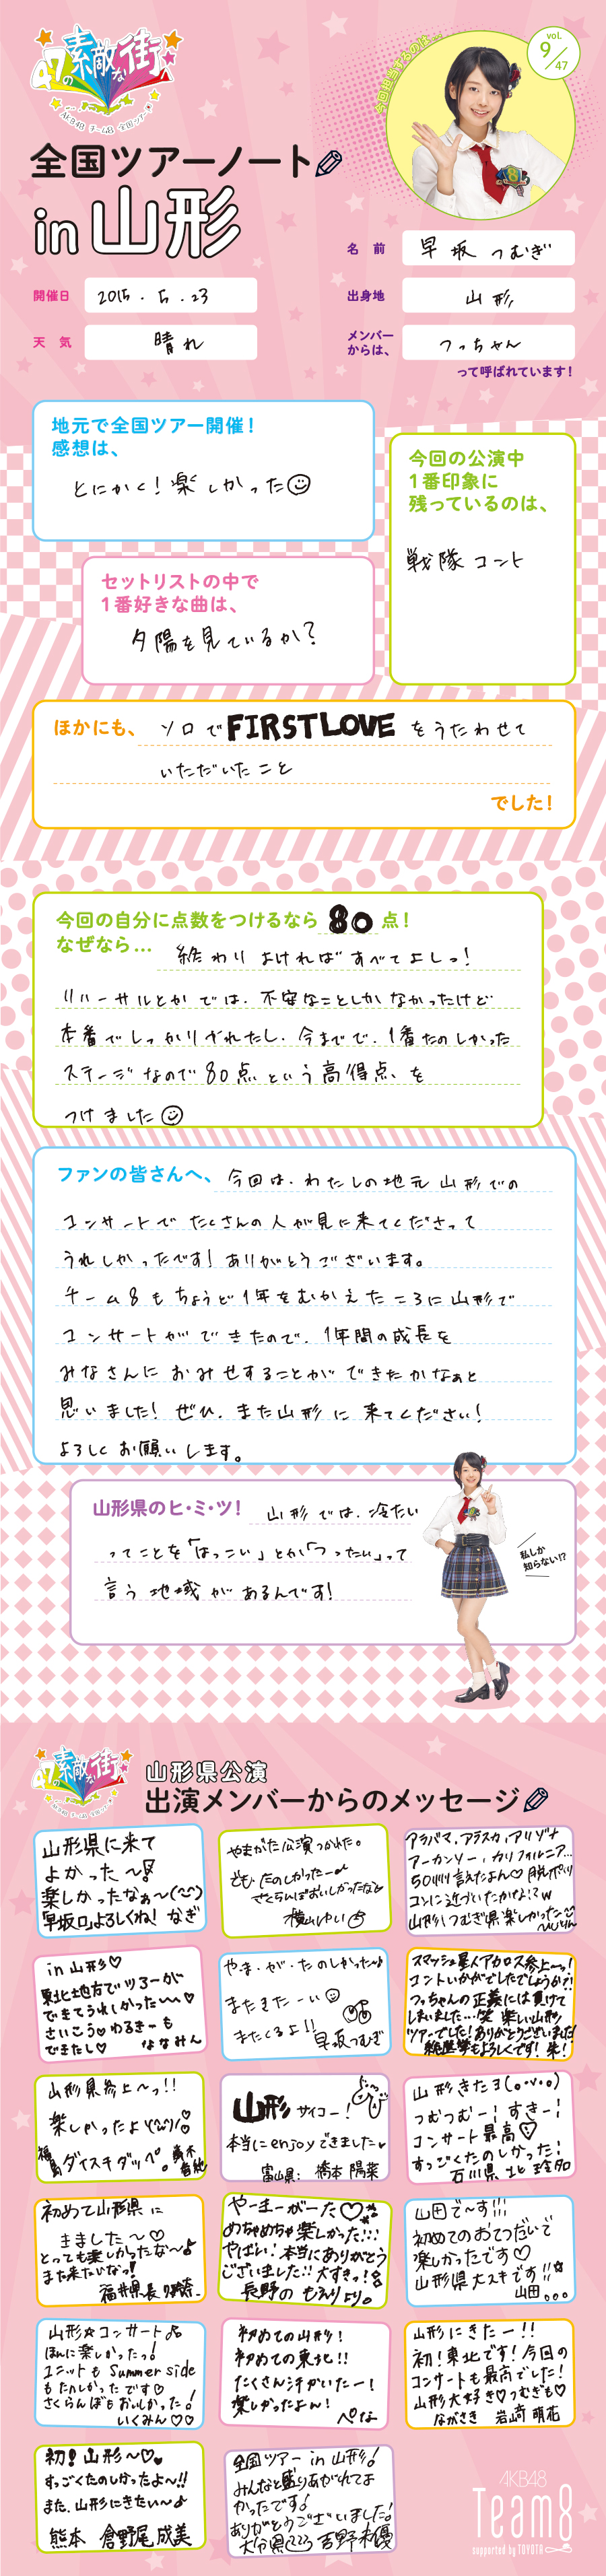 47の素敵な街
AKB48 チーム8 全国ツアー
全国ツアーノート
in 山形
今回担当するのは…
vol.
9/47
名前 早坂つむぎ
開催日 2015.5.23
出身地 山形
天気 晴れ
メンバーからは、 つっちゃん
って呼ばれています！
地元で全国ツアー開催！
感想は、
とにかく！楽しかった
今回の公演中
1番印象に
残っているのは、
戦隊コント
セットリストの中で
1番好きな曲は、
夕陽を見ているか？
ほかにも、 ソロでFIRST LOVEをうたわせて
いただいたこと
でした！
今回の自分に点数をつけるなら 80 点！
なぜなら… 終わりよければすべてよしっ！
リハーサルとかでは、不安なことしかなかったけど
本番でしっかりできたし、今までで、1番たのしかった
ステージなので80点という高得点を
つけました
ファンの皆さんへ、 今回は、わたしの地元山形での
コンサートでたくさんの人が見に来てくださって
うれしかったです！ありがとうございます。
チーム8もちょうど1年をむかえたころに山形で
コンサートができたので、1年間の成長を
みなさんにおみせすることができたかなぁと
思いました！ぜひ、また山形に来てください！
よろしくお願いします。
山形県のヒ・ミ・ツ！ 山形では、冷たい
ってことを「はっこい」とか「つったい」って
言う地域があるんです！
私しか
知らない!?
47の素敵な街
山形県公演
出演メンバーからのメッセージ
山形県に来て
よかった～！
楽しかったなぁ～
「早坂口」よろしくね！なぎ
やまがた公演つかれた。
ども、たのしかったー
さくらんぼおいしかったな
横山ゆい
アラバマ、アラスカ、アリゾナ
アーカンソー、カリフォルニア…
50州言えたよん♡ 脱ポンコツ
コンに近づいたかな！？w
山形つむぎ県楽しかった
in 山形♡
東北地方でツアーが
できてうれしかった～♡
さいこう♡わるきーも
できたし♡ ななみん
や・ま・が・た のしかった～♪
またきたーい
またくるよ！！
早坂つむぎ
スマッシュ星人アカロス参上～っ！
コントいかがでしたでしょうか？！
つっちゃんの正義には負けて
しまいました…笑 楽しい山形
ツアーでした！ありがとうございました！
山形県参上～っ！！
楽しかったよ
福島ダイスキダッペ。
山形サイコー！
本当にenjoyできました
富山県：橋本陽菜
山形きたヨ(。・v・。)
つむつむー！すきー！
コンサート最高♡
すっごくたのしかった！
石川県 北玲名
初めて山形県に
きました～♡
とっても楽しかったな～♪
また来たいなっ！
福井県 長久玲奈
やーまーがーた♡
めちゃめちゃ楽しかった！！
やばい！本当にありがとう
ございました！！大すきっ！
長野の もえりより。
山田で～す！！！
初めてのおてつだいで
楽しかったです♡
山形県大スキです！！
山田。。。
山形☆コンサート♫
ほんに楽しかったっ！
ユニットもSummer side
もたのしかったです♡
さくらんぼもおいしかった！
いくみん♡♡
初めての山形！
初めての東北！！
たくさん汗かいたー！
楽しかったよん！
ぺな
山形にきたー！！
初！東北です！今回の
コンサートも最高でした！
山形大好き♡つむぎも♡
ながさき 岩﨑萌花
初！山形～♡
すっごくたのしかったよ～！！
また、山形にきたい～♪
熊本 倉野尾成美
全国ツアー in 山形！
みんなと盛りあがれてよ
かったです！
ありがとうございました！
大分県 吉野未優
AKB48
Team8
supported by TOYOTA